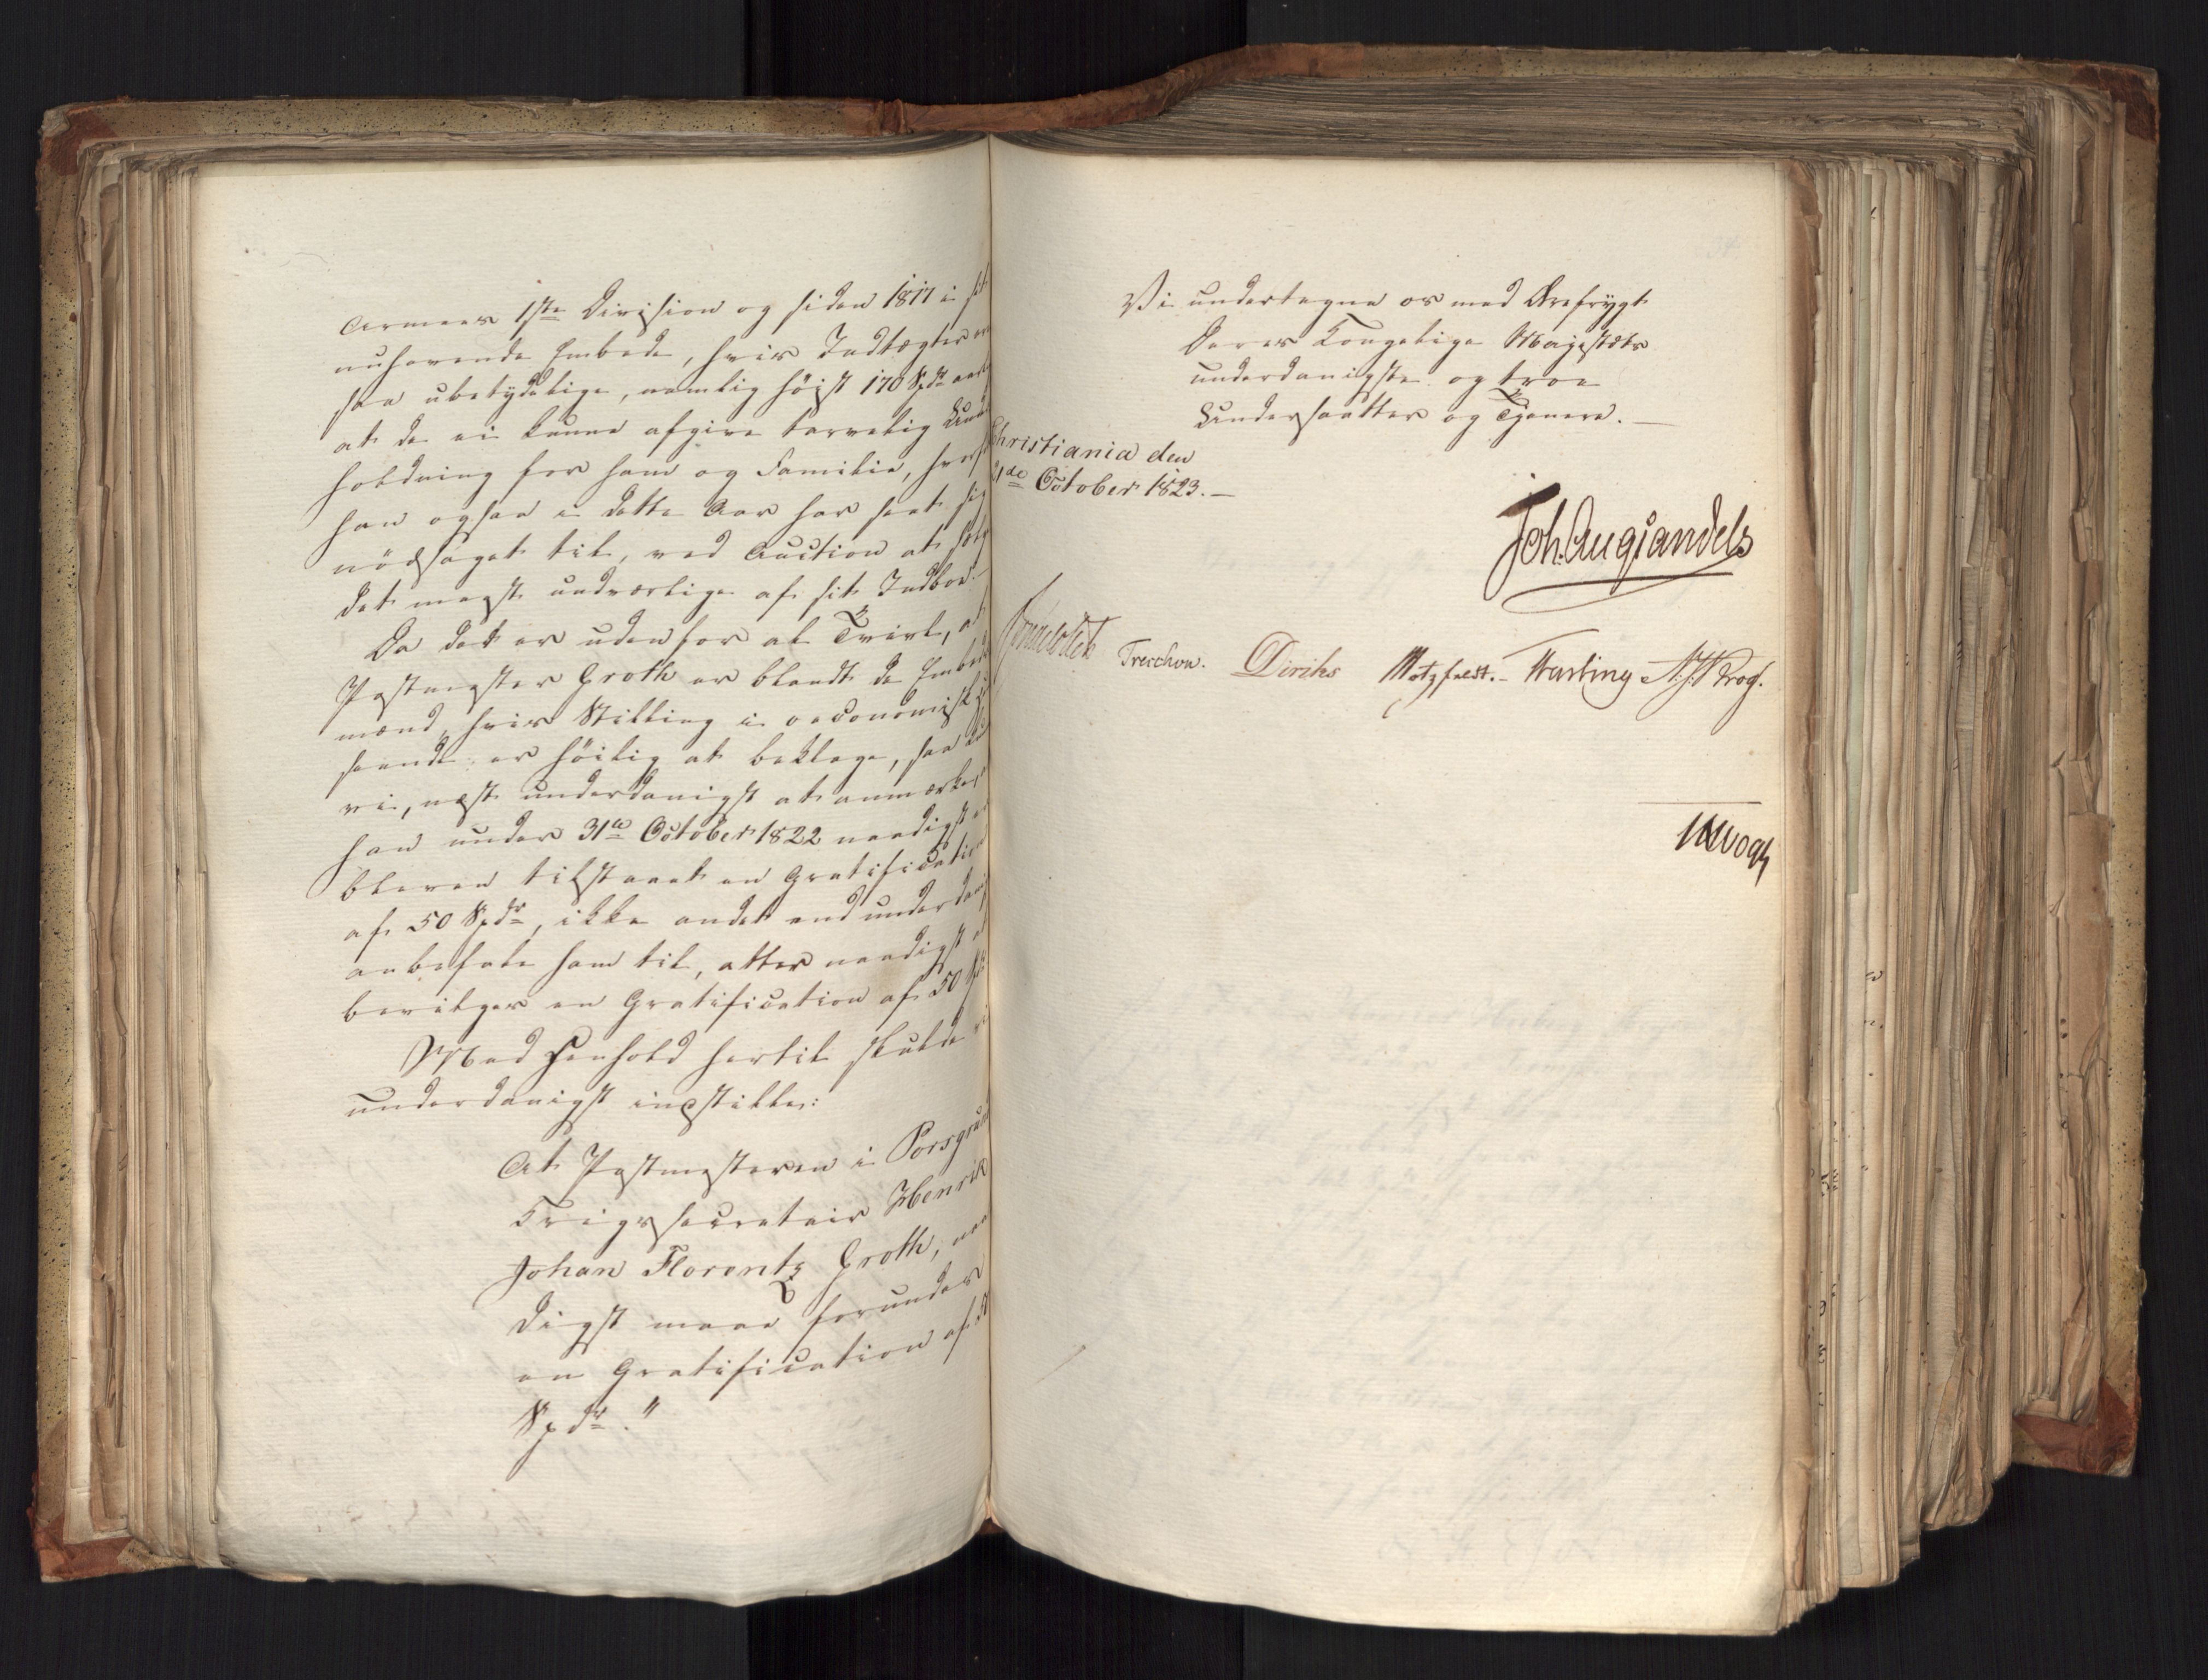 Armeens 1ste Division og siden 1817 i sit
nuhavende Embede, hvis Indtægter ere
saa ubetydelige, nemlig höist 170 Spdr aarl
at de ei kunne afgive tarvelig Under
holdning for ham og Familie, hvorf
han ogsaa i dette Aar har seet sig
nödsaget til, ved Auction at sælg
det meest undværlige af sit Indboe.
Da det er udenfor al Tvivl, at
Postmester Groth er blandt de Embeds
mænd, hvis Stilling i oeconomisk
seende er höilig at beklage, saa
vi, næst underdanigst at anmærke,
han under 31te October 1822 naadigst er
bleven tilstaaet en Gratification
af 50 Spdr, ikke andet end underdan
anbefale ham til, atter naadigst at
bevilges en Gratification af 50 Spdr
Med Henhold hertil skulde vi
underdanigst indstille:
At Postmesteren i Porsgrund
Krigssecretair Henrik
Johan Florentz Groth, naa
digst maae forundes
en Gratification af 50
Spdr."
Vi undertegne os med Ærefrygt
Deres Kongelige Majestæts
underdanigste og troe
Undersaatter og Tjenere. —
Christiania den
21de October 1823. —
Joh. Aug. Sandels
Sommerhielm Treschow. Diriks Motzfeldt. - Fasting N. J. Krog.
JHVogt